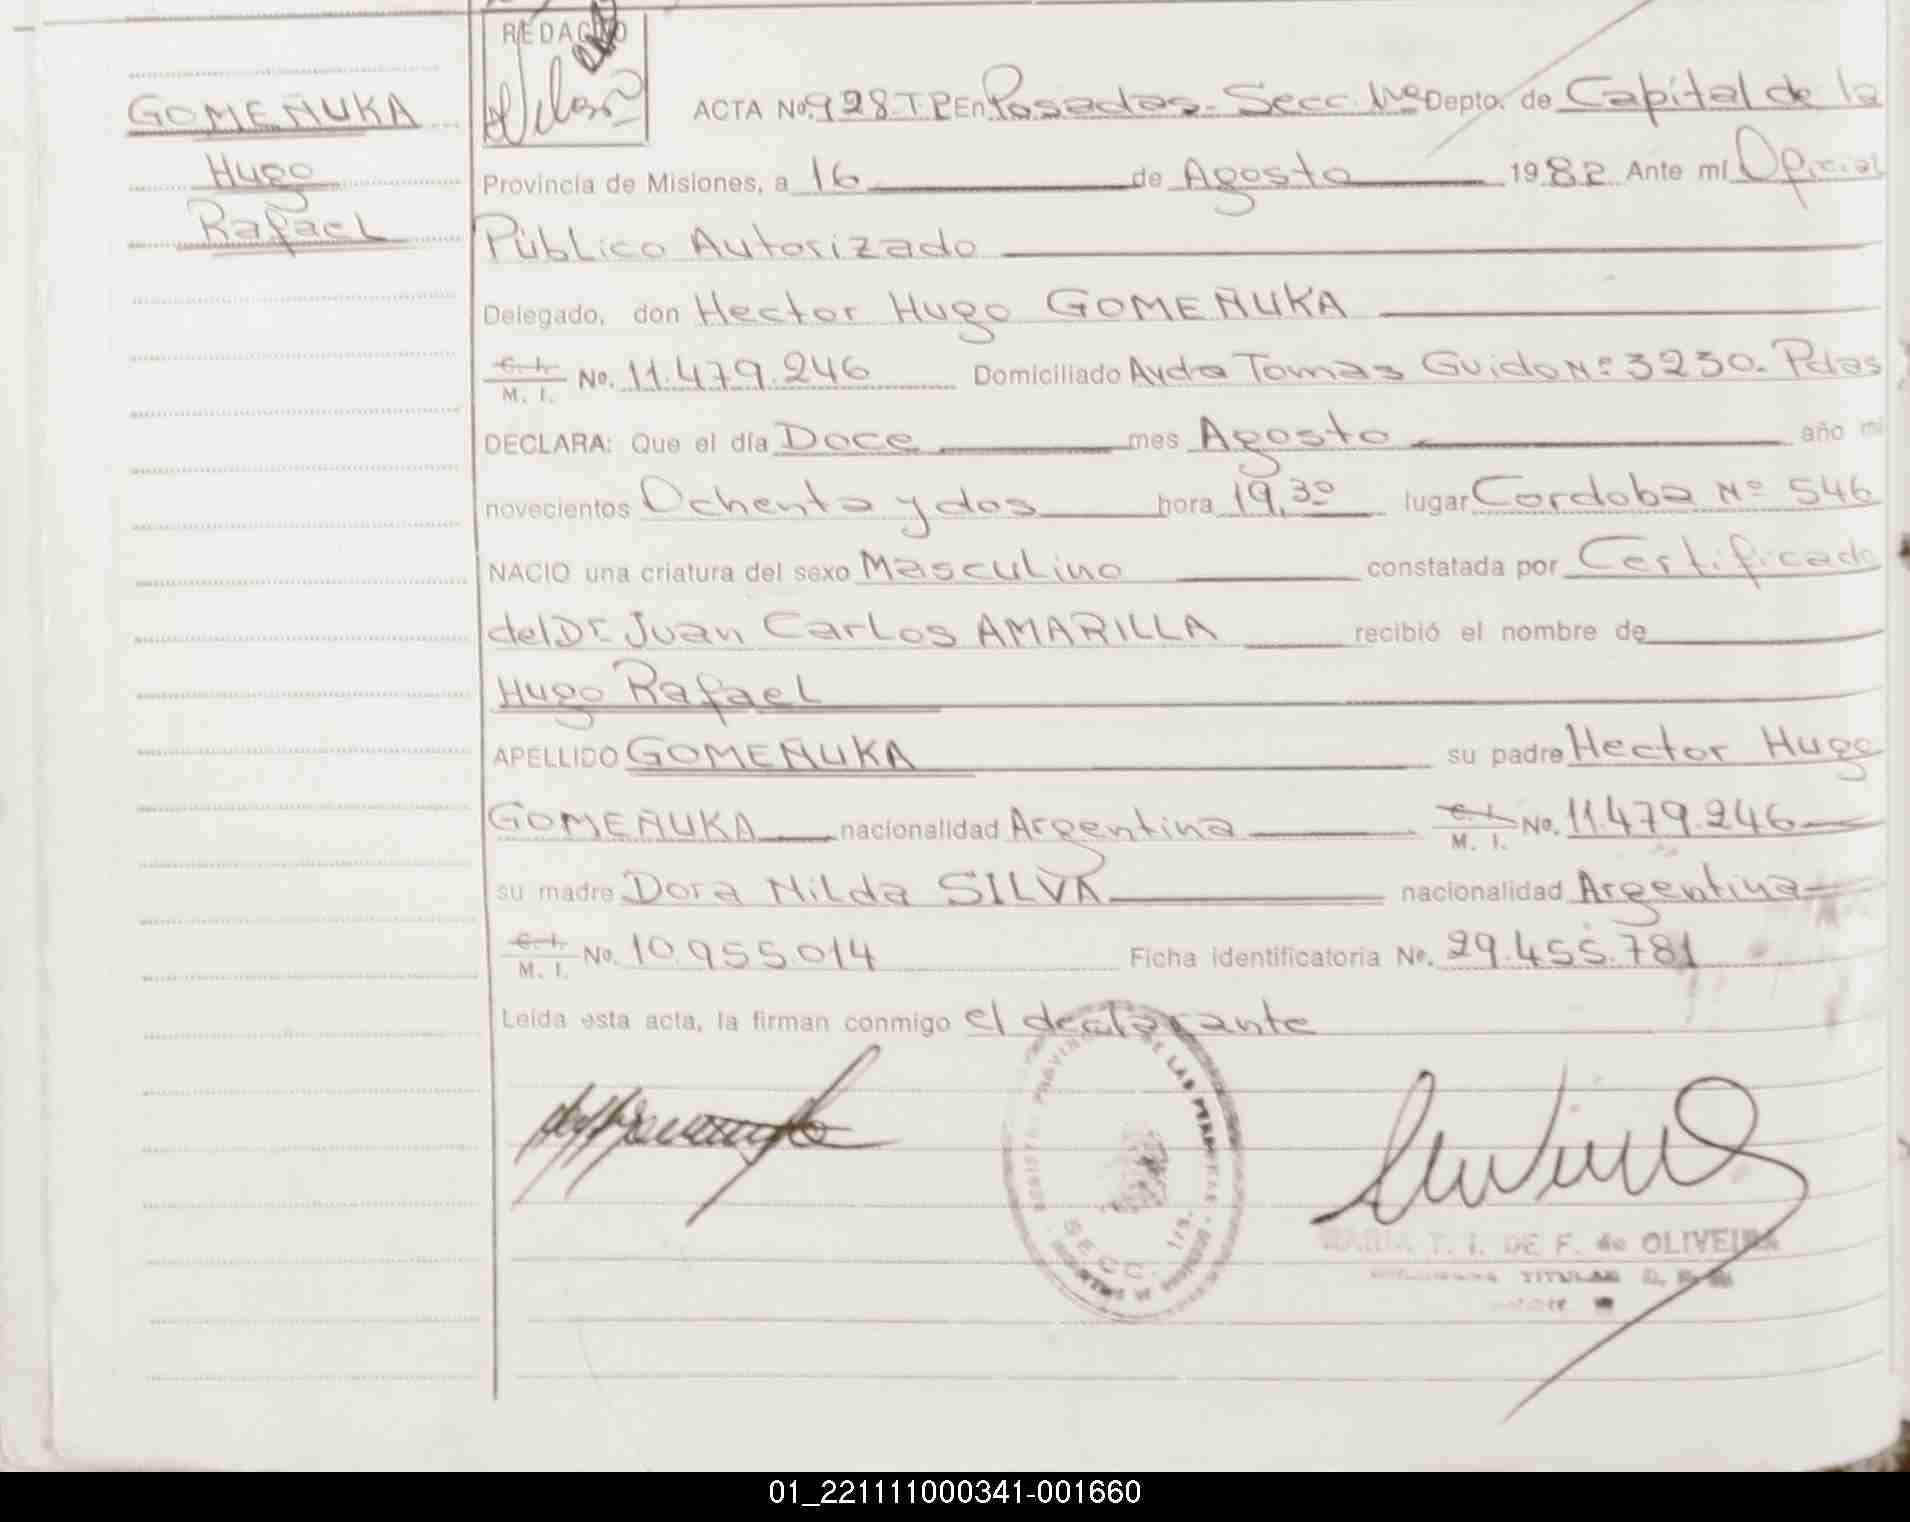 GOMEÑUKA
Hugo
Rafael
REDACTO
ACTA No. 928 T.P. En Posadas - Secc. 1ra Depto. de Capital de la
Provincia de Misiones, a 16 de Agosto 1982 Ante mí Oficial
Público Autorizado
Delegado, don Hector Hugo GOMEÑUKA
C. I.
M. I. No. 11.479.246 Domiciliado Avda Tomas Guido Nº 3230. Pdas
DECLARA: Que el día Doce mes Agosto año mil
novecientos Ochenta y dos hora 19,30 lugar Cordoba Nº 546
NACIO una criatura del sexo Masculino constatada por Certificado
del Dr. Juan Carlos AMARILLA recibió el nombre de
Hugo Rafael
APELLIDO GOMEÑUKA su padre Hector Hugo
GOMEÑUKA nacionalidad Argentina C. I.
M. I. No. 11.479.246
su madre Dora Nilda SILVA nacionalidad Argentina
C. I.
M. I. No. 10.955.014 Ficha identificatoria No. 29.455.781
Leída esta acta, la firman conmigo el declarante
PROVINCIAL DE LAS PERSONAS
SECC. 1ra.
MARIA T. I. DE F. de OLIVEIRA
TITULAR
01_221111000341-001660